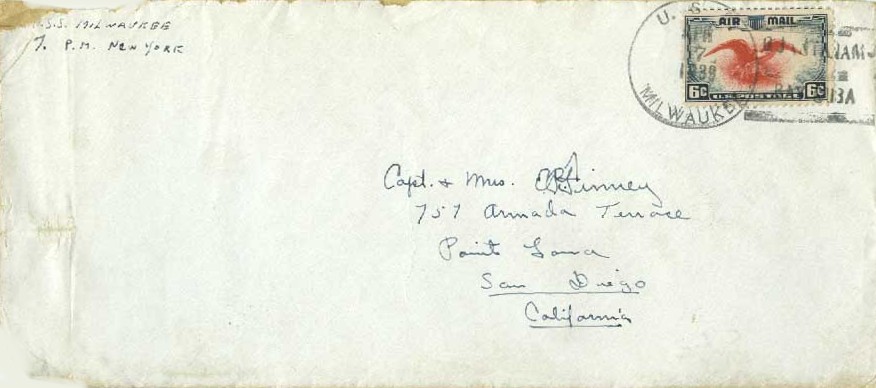 .S.S. MILWAUKEE
P.M. NEW YORK
U. S.
MILWAUKEE
7
1939
AIR MAIL
6c 6c
U.S. POSTAGE
Capt. & Mrs. Finney
757 Armada Terrace
Point Loma
San Diego
California